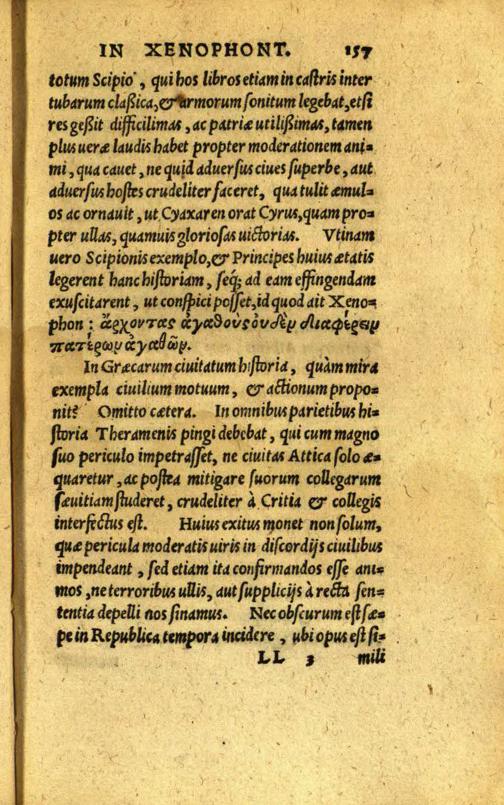 IN XENOPHONT. 157
totum Scipio, qui hos libros etiam in castris inter
tubarum claßica, & armorum sonitum legebat, etsi
res geßit difficilimas, ac patriæ utilißimas, tamen
plus ueræ laudis habet propter moderationem ani=
mi, qua cauet, ne quid aduersus ciues superbe, aut
aduersus hostes crudeliter faceret, qua tulit æmul=
os ac ornauit, ut Cyaxaren orat Cyrus, quam pro=
pter ullas, quamuis gloriosas uictorias. Vtinam
uero Scipionis exemplo, & Principes huius ætatis
legerent hanc historiam, seq; ad eam effingendam
exuscitarent, ut conspici posset, id quod ait Xeno=
phon: ἄρχοντας ἀγαθοὺς οὐδὲν διαφέρειν
πατέρων ἀγαθῶν.
In Græcarum ciuitatum historia, quàm mira
exempla ciuilium motuum, & actionum propo=
nit? Omitto cætera. In omnibus parietibus hi=
storia Theramenis pingi debebat, qui cum magno
suo periculo impetrasset, ne ciuitas Attica solo æ=
quaretur, ac postea mitigare suorum collegarum
sæuitiam studeret, crudeliter à Critia & collegis
interfectus est. Huius exitus monet non solum,
quæ pericula moderatis uiris in discordijs ciuilibus
impendeant, sed etiam ita confirmandos esse ani=
mos, ne terroribus ullis, aut supplicijs à recta sen=
tentia depelli nos sinamus. Nec obscurum est sæ=
pe in Republica tempora incidere, ubi opus est si=
LL 3 mili